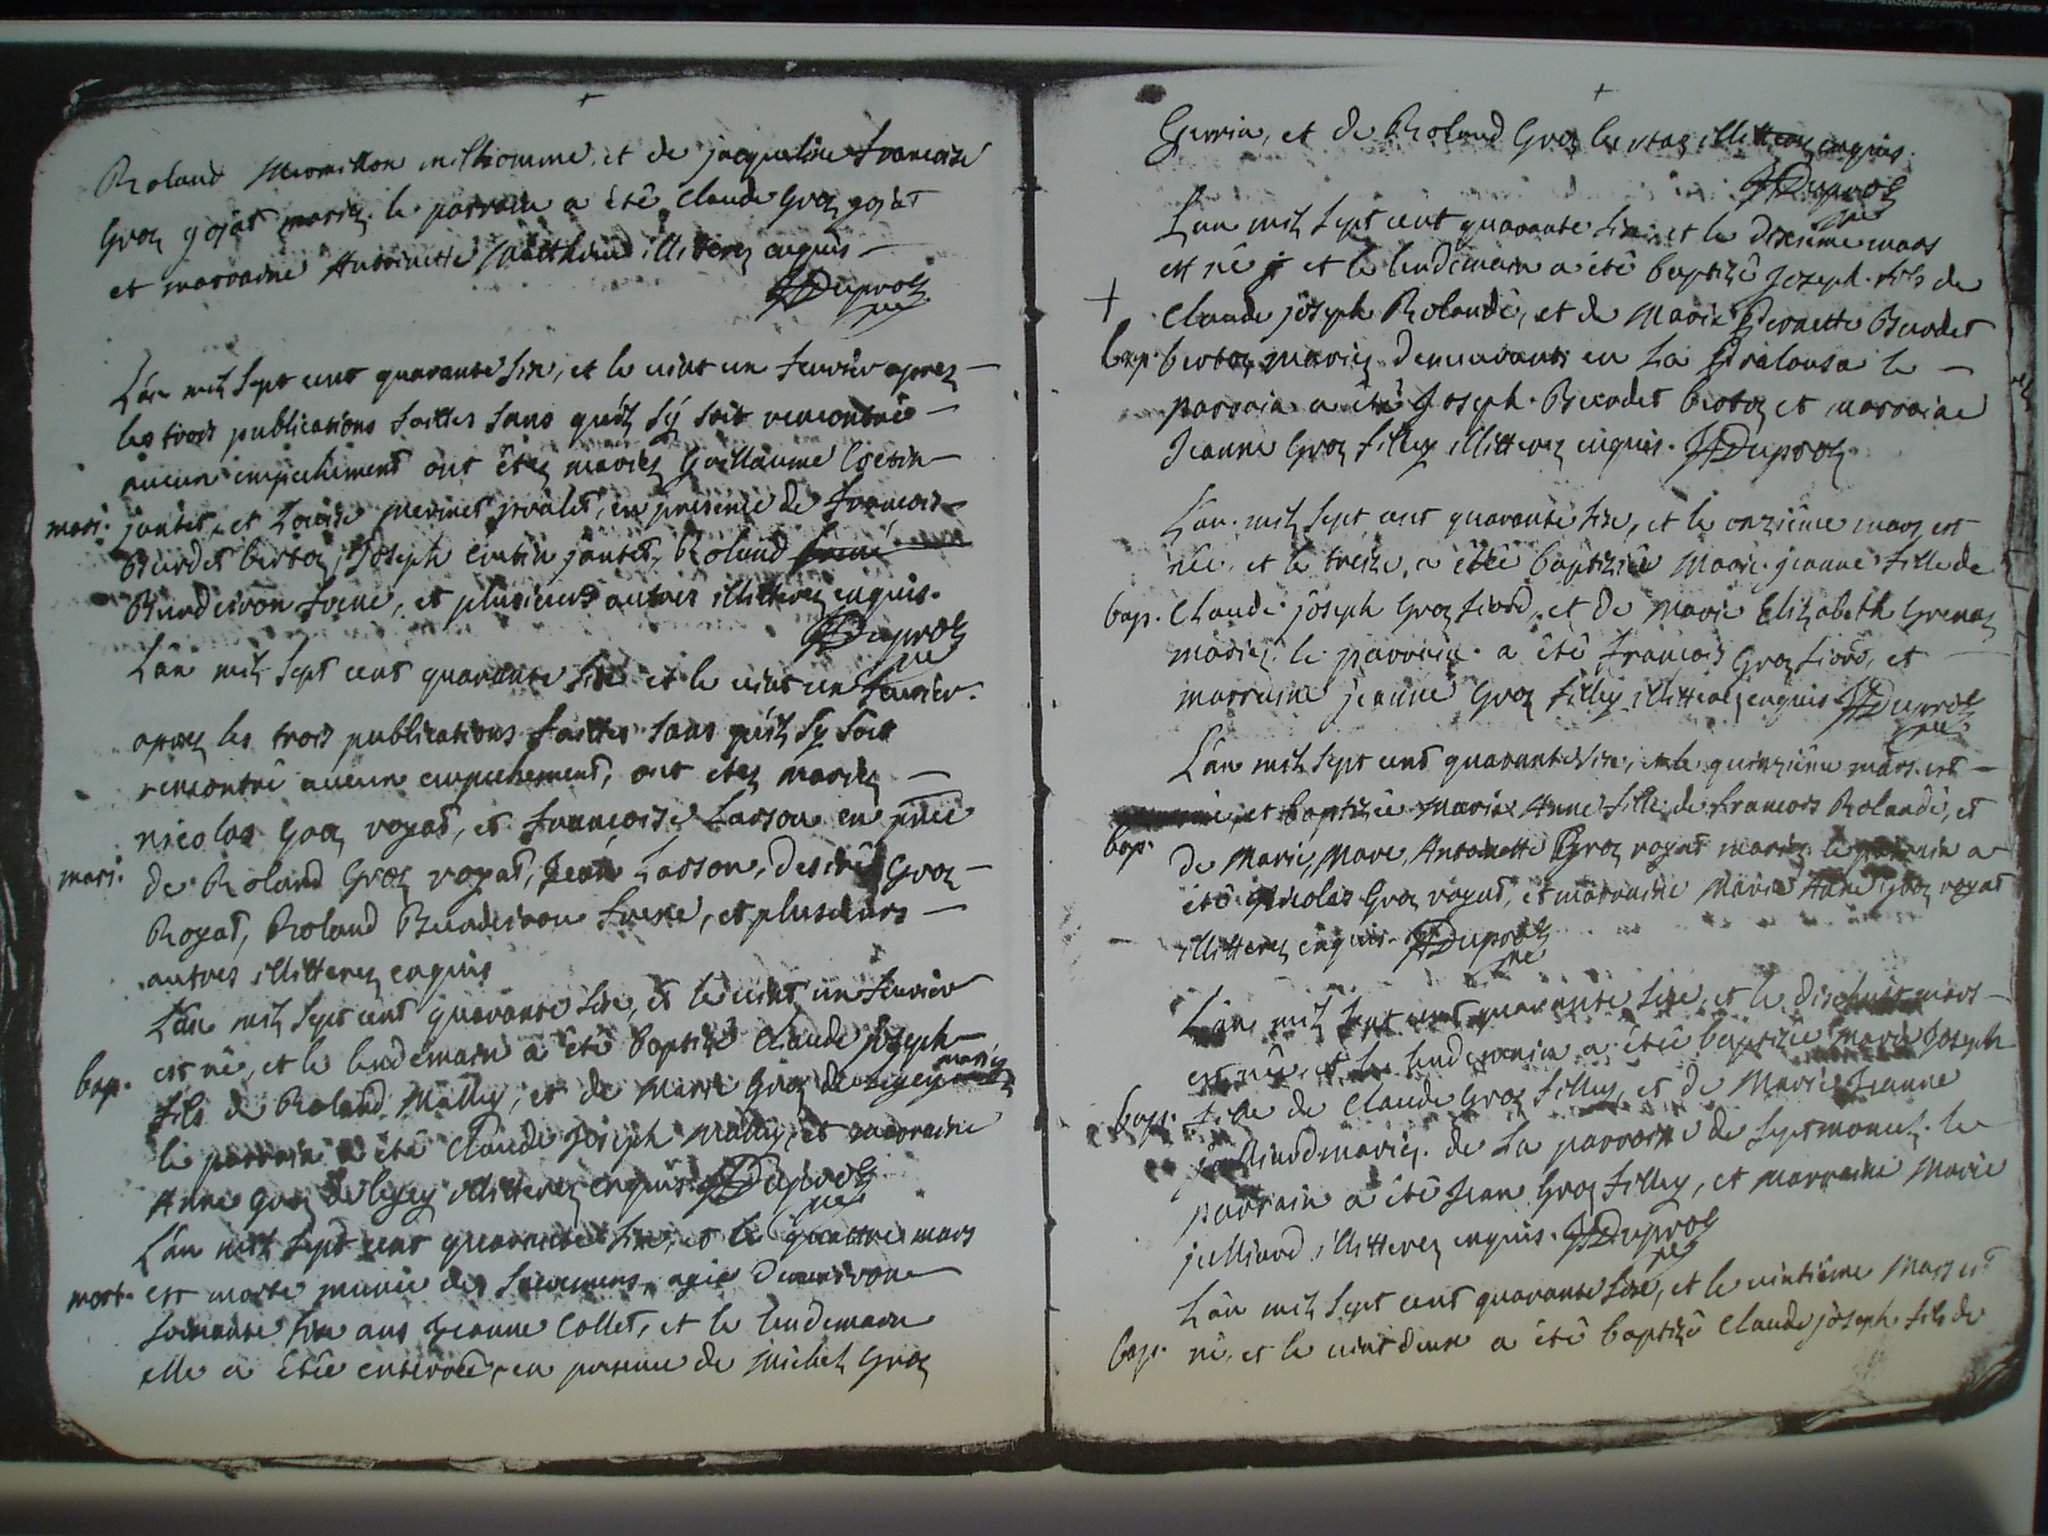 Roland Mermillon milhomme, et de jacqueline francoise
Groz gojat mariez. le parrain a été Claude Groz gojat
et marraine Antoinette Matthieu illitterez enquis
JfDuproz
L'an mil sept cent quarante six, et le vint un fevrier aprez
les trois publications faittes sans qu'il sy soit rencontré
aucun empechement ont étez mariez Guillaume Coetin
mari. jantet, et Louise Mermet pralet, en presence de francois
Burdet bertoz, Joseph jantet, Roland
Burdeiron frene, et plusieurs autres illitterez enquis.
JfDuproz
L'an mil sept cent quarante six et le vint un fevrier.
aprez les trois publications faittes sans qu'il sy soit
rencontré aucun empechement, ont etez mariez
nicolas Groz royat, et francoise Lasson en pnce
mari. de Roland Groz royat, Jean Lasson, desiré Groz
Royat, Roland Burdeiron frene, et plusieurs
autres illitterez enquis
L'an mil sept cent quarante six, et le vint un fevrier
est né, et le lendemain a été baptizé Claude joseph
bap. fils de Roland Malley, et de Marie Groz de legey mariez
le parrain a été Claude Joseph Malley, et marraine
Anne Groz de legey illitterez enquis JfDuproz
L'an mil sept cent quarante six, et le quattre mars
mort. est morte munie des sacremens, agée denviron
soixante six ans Jeanne Collet, et le lendemain
elle a étée enterrée, en presence de Michel Groz
Perrin, et de Roland Groz bertoz illitterez enquis.
JfDuproz
L'an mil sept cent quarante six, et le dixieme mars
est né et le lendemain a été baptizé Joseph fils de
Claude joseph Rolandé, et de Marie Pernette Burdet
bap. bertoz mariez demeurants en La le
parrain a été Joseph Burdet bertoz et marraine
Jeanne Groz filley illitterez enquis. JfDuproz
L'an mil sept cent quarante six, et le onzième mars est
née, et le treize, a étée baptizée Marie jeanne fille de
bap. Claude joseph Groz fiord, et de Marie Elizabeth Grenaz
mariez. le parrain a été francois Groz fiord, et
marraine jeanne Groz filley illitterez enquis JfDuproz
L'an mil sept cent quarante six, et le quinzième mars est
née, et baptizée Marie Anne fille de francois Rolandé, et
bap. de Marie, Antoinette Groz royat mariez. le parrain a
été Nicolas Groz royat, et marraine Marie Anne Groz royat
illitterez enquis. JfDuproz
L'an mil sept cent quarante six, et le dixhuit mars
est née, et le lendemain a étée baptizée Marie Joseph
bap. fille de Claude Groz filley, et de Marie Jeanne
julliard mariez. de La parroisse de Septmoncel. le
parrain a été Jean Groz filley, et marraine Marie
julliard illitterez enquis. JfDuproz
L'an mil sept cent quarante six, et le vintième Mars est
bap. né, et le vint deux a été baptizé Claude joseph fils de